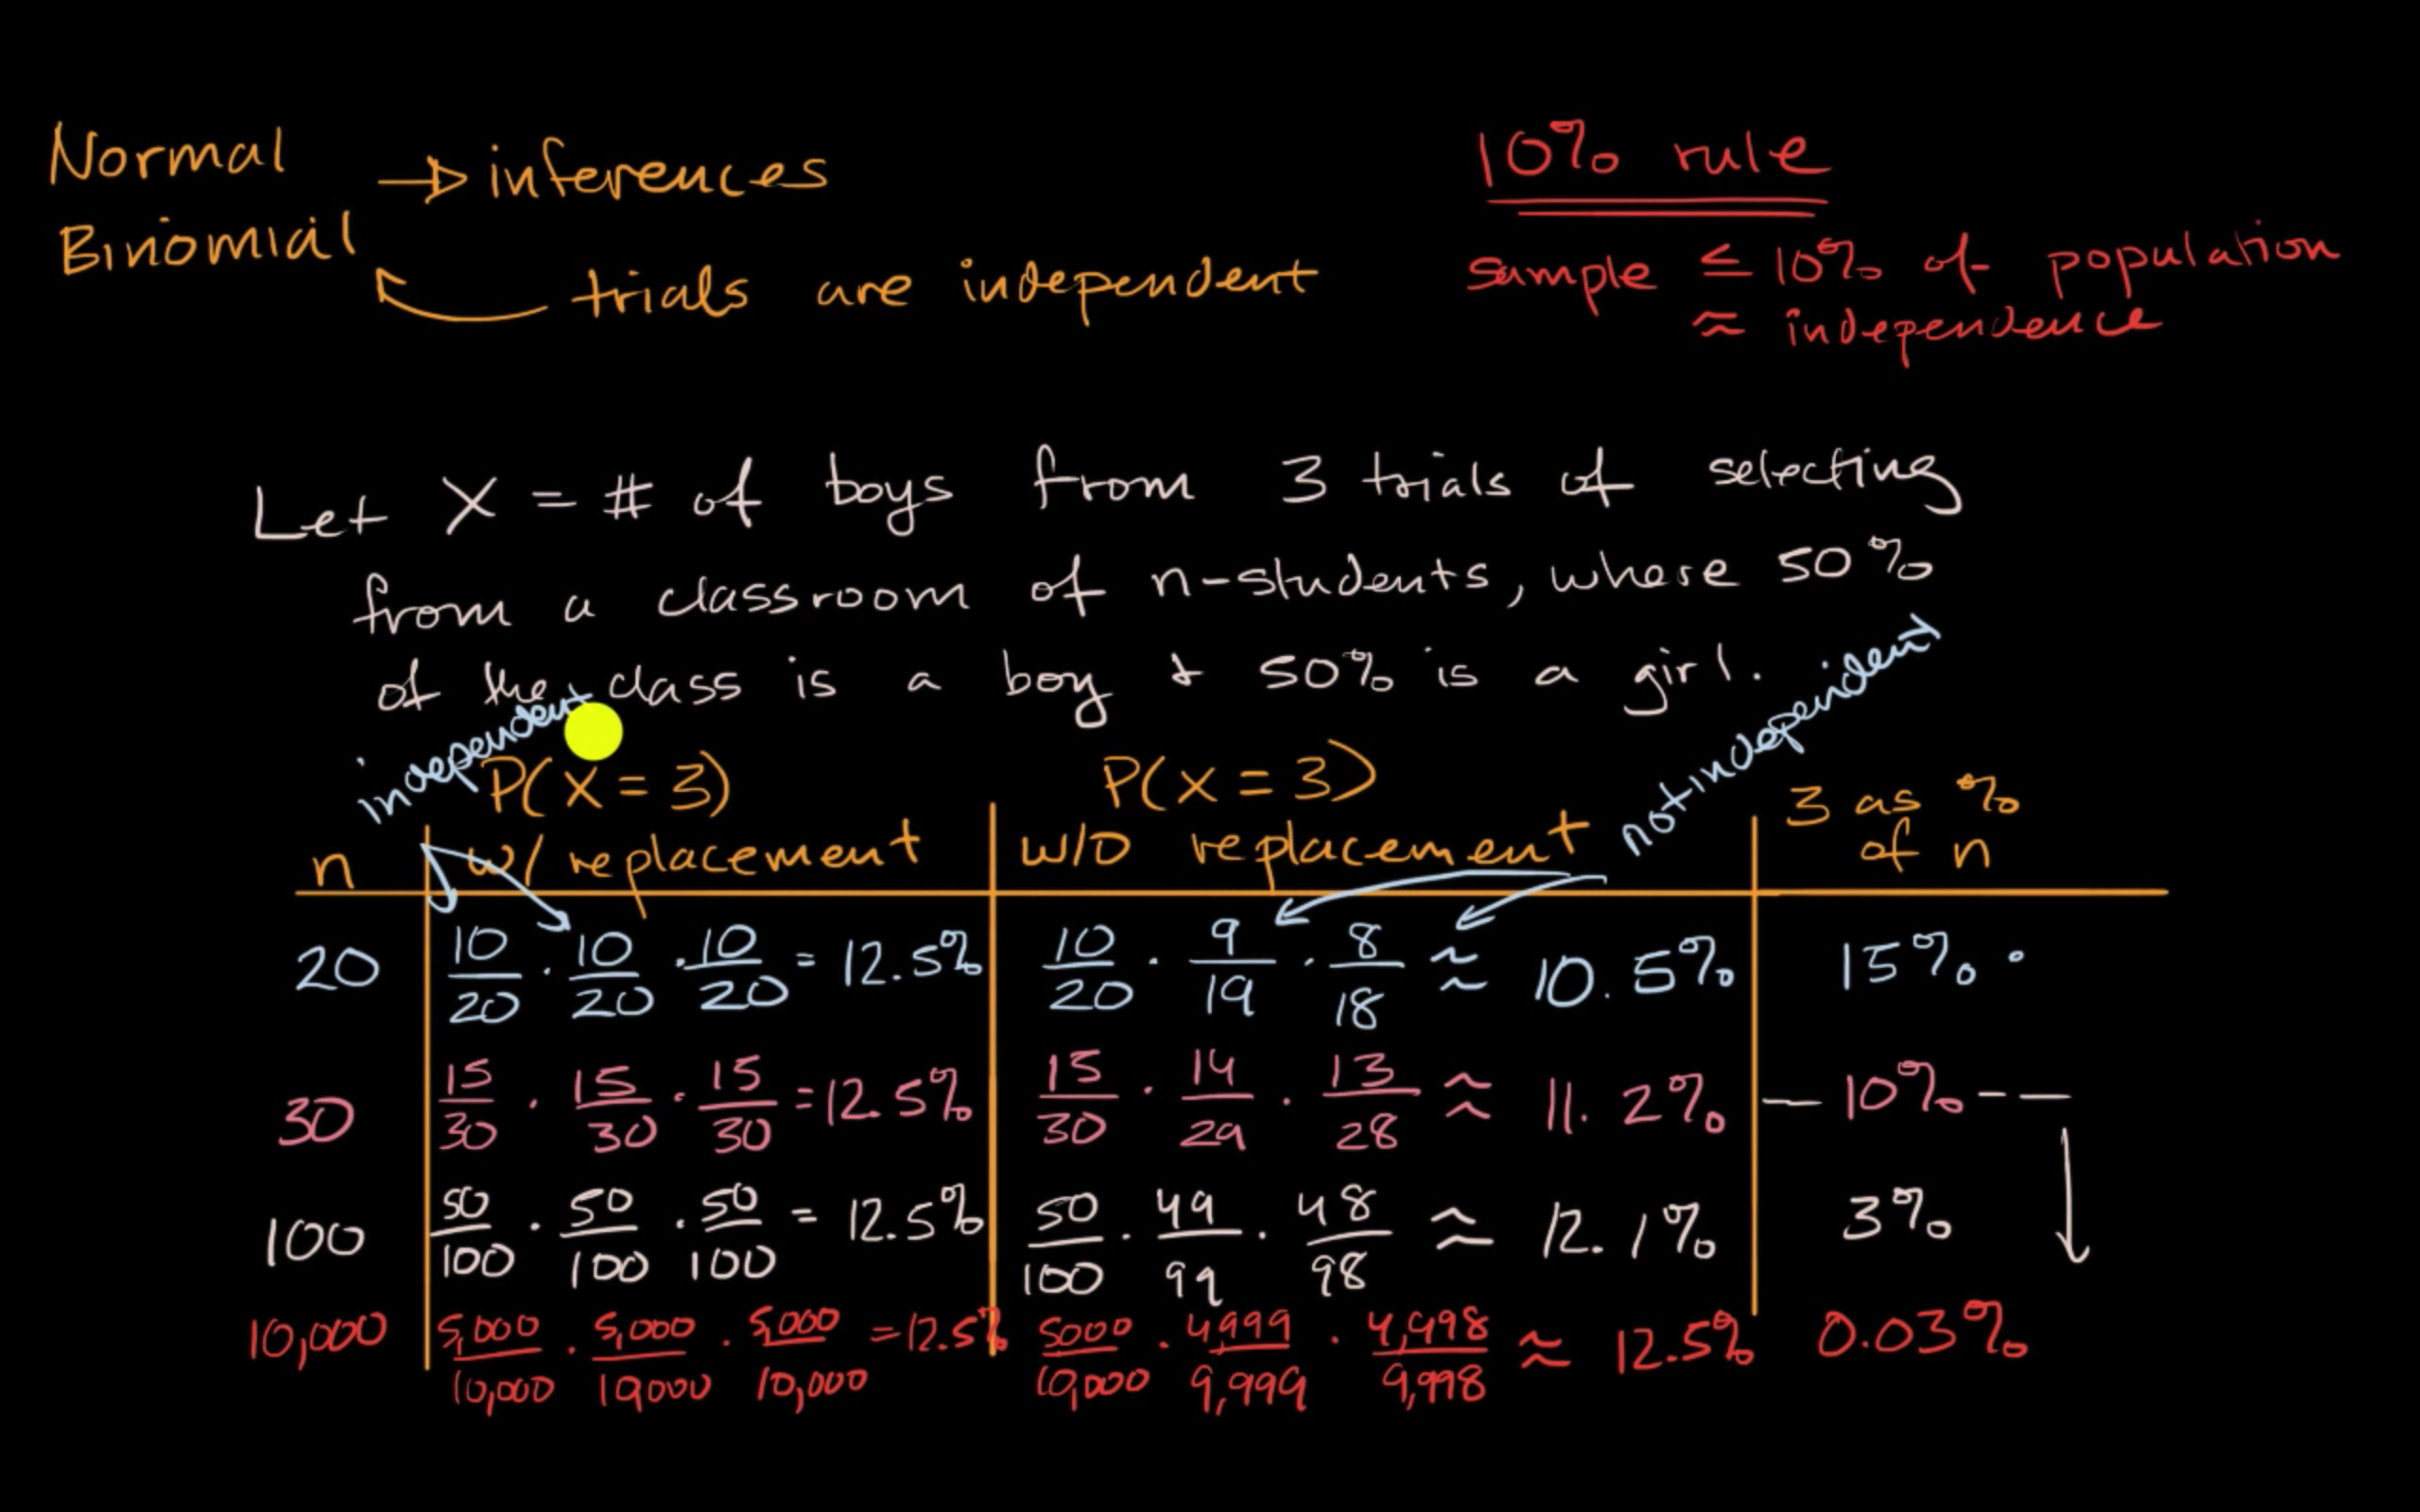 Normal → inferences
Binomial
trials are independent
10% rule
sample ≤ 10% of population
≈ independence
Let X = # of boys from 3 trials of selecting
from a classroom of n-students, where 50%
of the class is a boy + 50% is a girl.
independent
not independent
P(X = 3) P(X = 3) 3 as %
n w/ replacement w/o replacement of n
20 10/20 · 10/20 · 10/20 = 12.5% 10/20 · 9/19 · 8/18 ≈ 10.5% 15%
30 15/30 · 15/30 · 15/30 = 12.5% 15/30 · 14/29 · 13/28 ≈ 11.2% 10%
100 50/100 · 50/100 · 50/100 = 12.5% 50/100 · 49/99 · 48/98 ≈ 12.1% 3%
10,000 5,000/10,000 · 5,000/10,000 · 5,000/10,000 = 12.5% 5000/10,000 · 4,999/9,999 · 4,998/9,998 ≈ 12.5% 0.03%